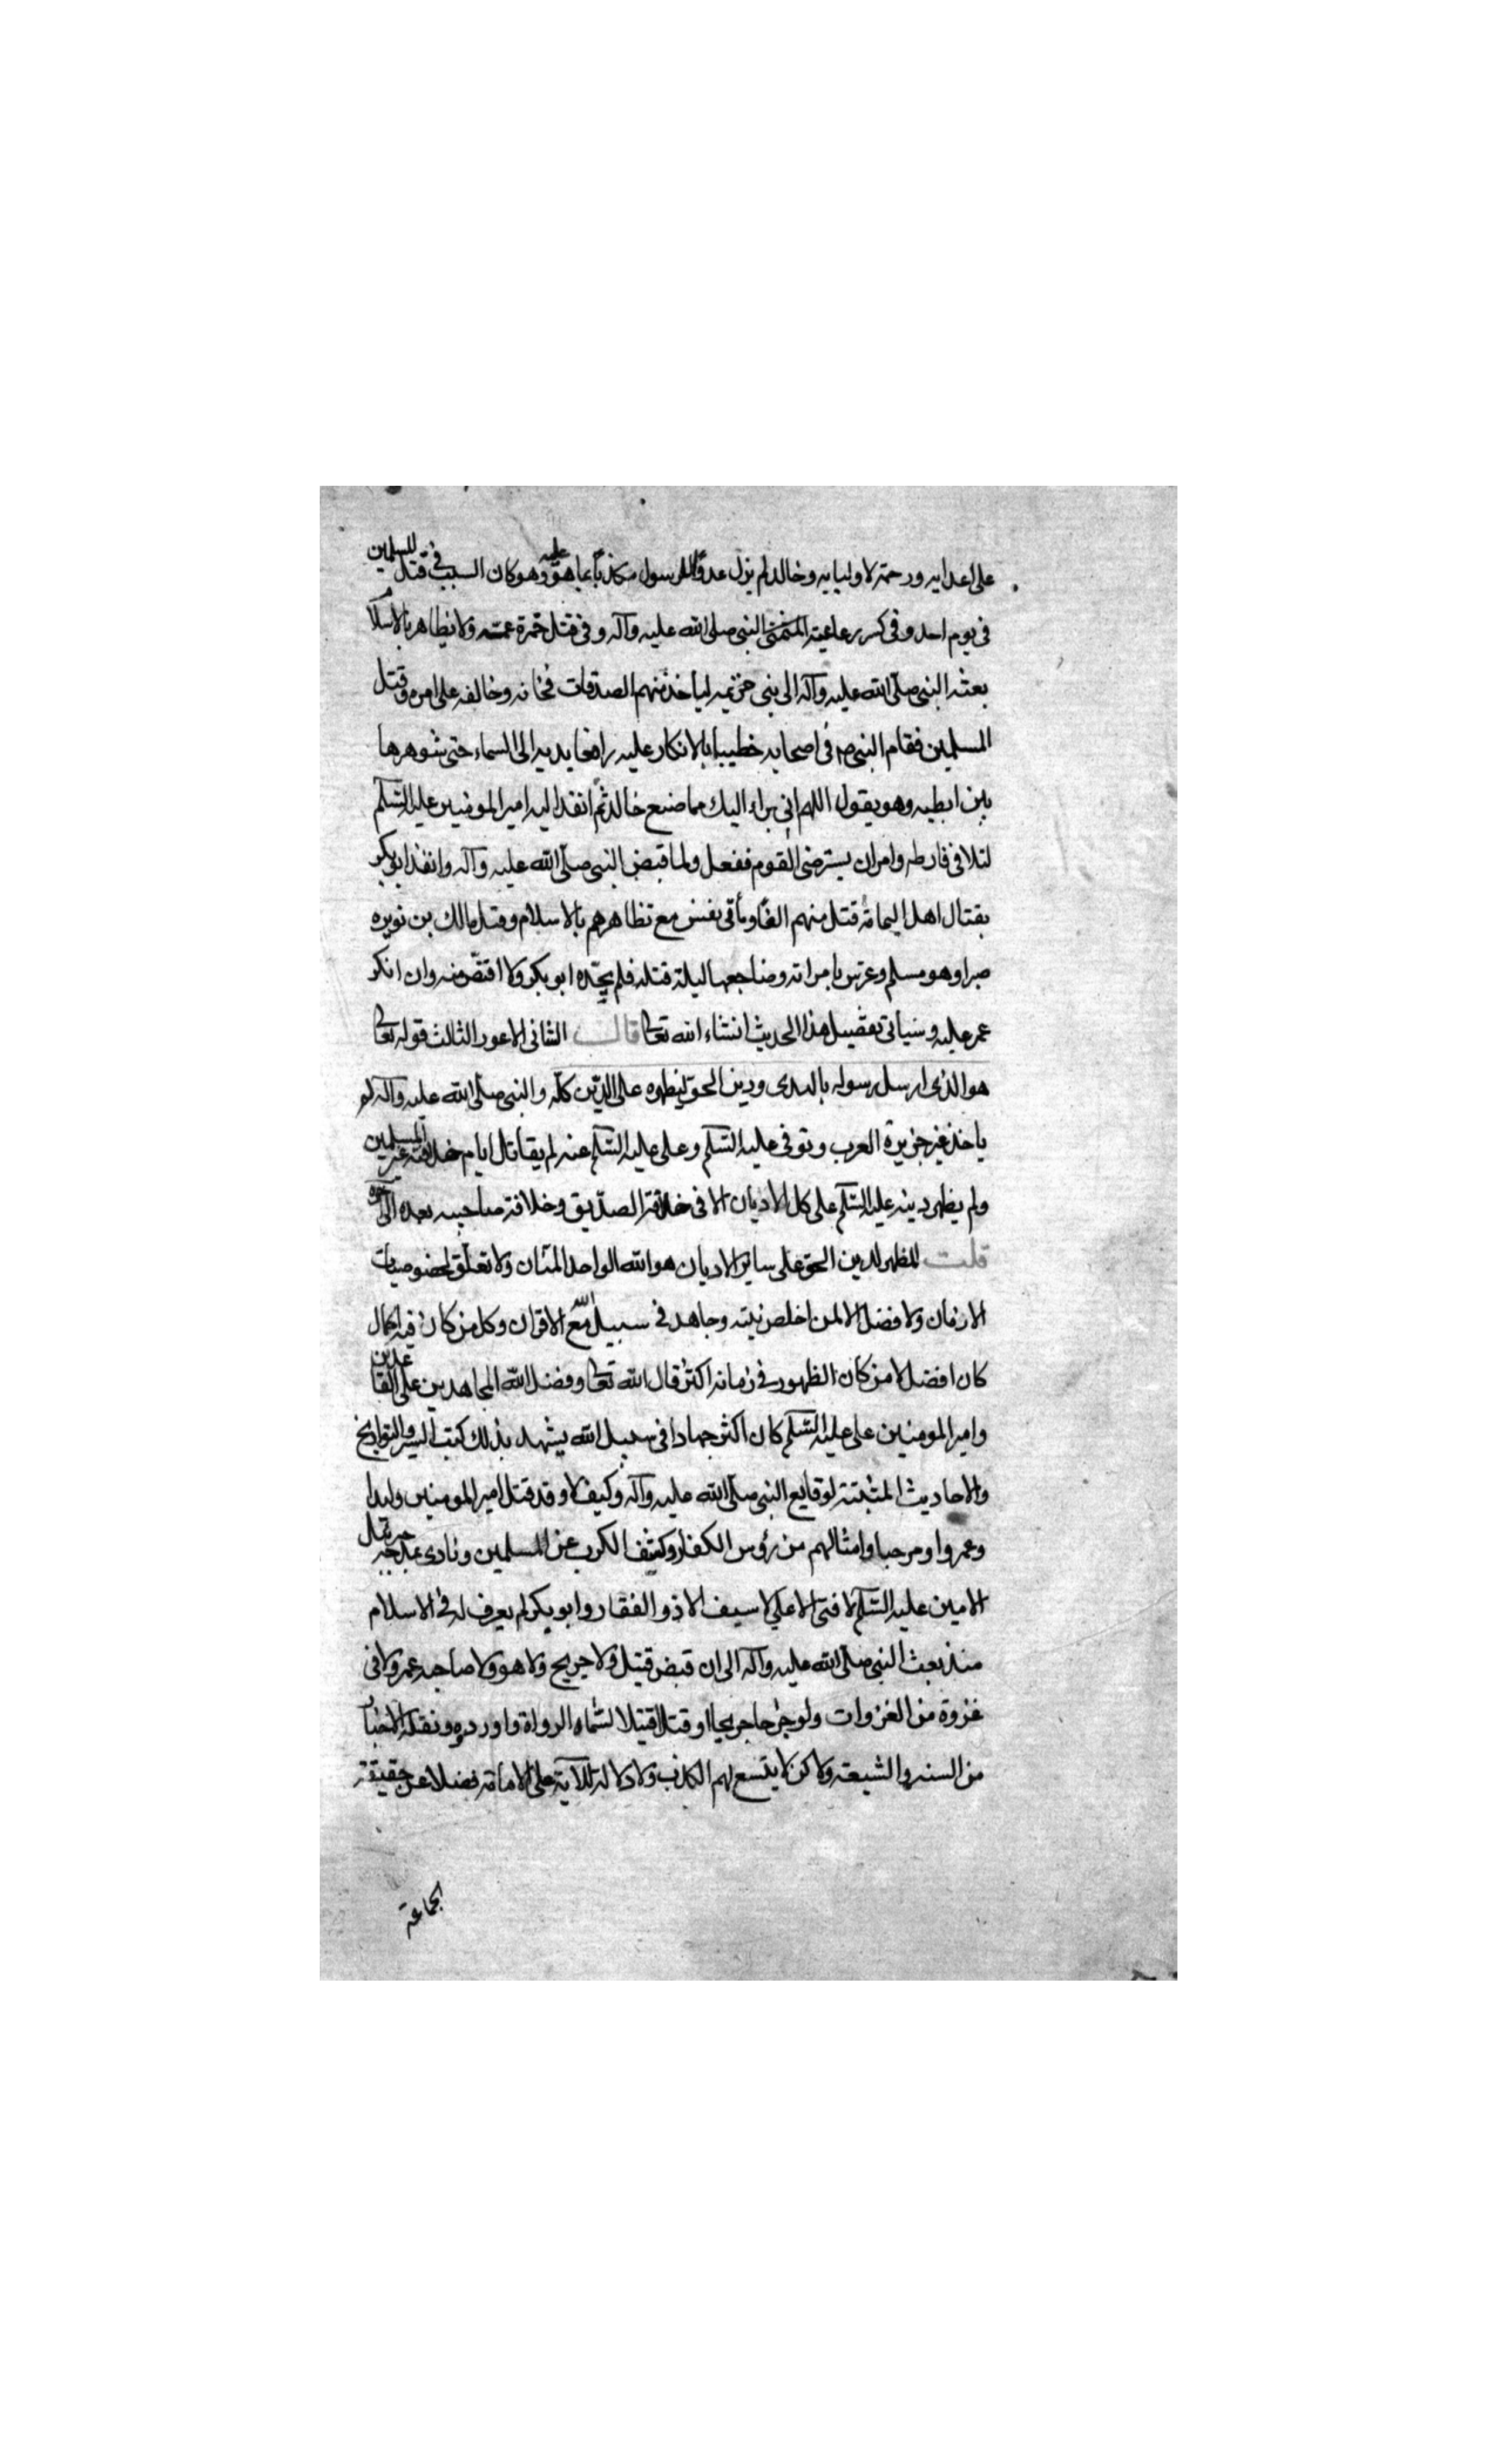 على اعدايه ورحمة لاوليايه وخالد لم يزل عدوا للرسول مكذبا بما هو عليه وهو كان السبب في قتل المسلمين
في يوم احد وفي كسر رباعية النبي صلى الله عليه وآله وفي قتل حمزة عمه ولما تظاهر بالاسلام
بعثه النبي صلى الله عليه وآله الى بني خزيمه لياخذ منهم الصدقات فخانه وخالفه على امره وقتل
المسلمين فقام النبي ص في اصحابه خطيبا بالانكار عليه رافعا يديه الى السماء حتى شوهدها
بين ابطيه وهو يقول اللهم اني براء اليك مما صنع خالد ثم انفذ اليه امير المومنين عليه السلم
لتلافي فارطه وامر ان يسترضى القوم ففعل ولما قبض النبي صلى الله عليه وآله وانفذ ابو بكر
بقتال اهل اليمامة قتل منهم الفا ومأتي نفس مع تظاهرهم بالاسلام وقتل مالك بن نويره
صبرا وهو مسلم وعرس بامراته وضاجعها ليلة قتله فلم يحده ابو بكر ولا اقتص منه وان انكر
عمر عليه وسياتي تفصيل هذا الحديث انشاء الله تعالى قالت الثاني الاعور الثالث قوله تعالى
هو الذي ارسل رسوله بالهدى ودين الحق ليظهره على الدين كله والنبي صلى الله عليه وآله لم
ياخذ غير جزيرة العرب وتوفي عليه السلم وعلى عليه السلم عنه لم يقاتل ايام خلافته غير المسلمين
ولم يظهر دينه عليه السلم على كل الاديان الا في خلافة الصديق وخلافة صاحبيه بعده الى آخره
قلت المظهر لدين الحق على ساير الاديان هو الله الواحد المنان ولا تعلق لخصوصيات
الازمان ولا فضل الا لمن اخلص نيته وجاهد في سبيل الله مع الاقران وكل من كان فيه اكمال
كان افضل لا من كان الظهور في زمانه اكثر قال الله تعالى وفضل الله المجاهدين على القاعدين
وامير المومنين على عليه السلم كان اكثر جهادا في سبيل الله يشهد بذلك كتب السير والتواريخ
والاحاديث المثبتة لوقايع النبي صلى الله عليه وآله وكيف لا وقد قتل امير المومنين وليدا
وعمروا ومرحبا وامثالهم من رؤس الكفار وكشف الكرب عن المسلمين ونادى جبرئيل
الامين عليه السلم لا فتى الا علي لا سيف الا ذو الفقار وابو بكر لم يعرف له في الاسلام
منذ بعث النبي صلى الله عليه وآله الى ان قبض قتيل ولا جريح ولا هو ولا صاحبه عمر ولا في
غزوة من الغزوات ولو جرحا جريحا او قتلا قتيلا لسماه الرواة واوردوه ونقله الاخبار
من السنه والشيعة ولاكن لا يتسع لهم الكذب ولا دلالة للآية على الامامة فضلا عن حقيقة
الجماعة